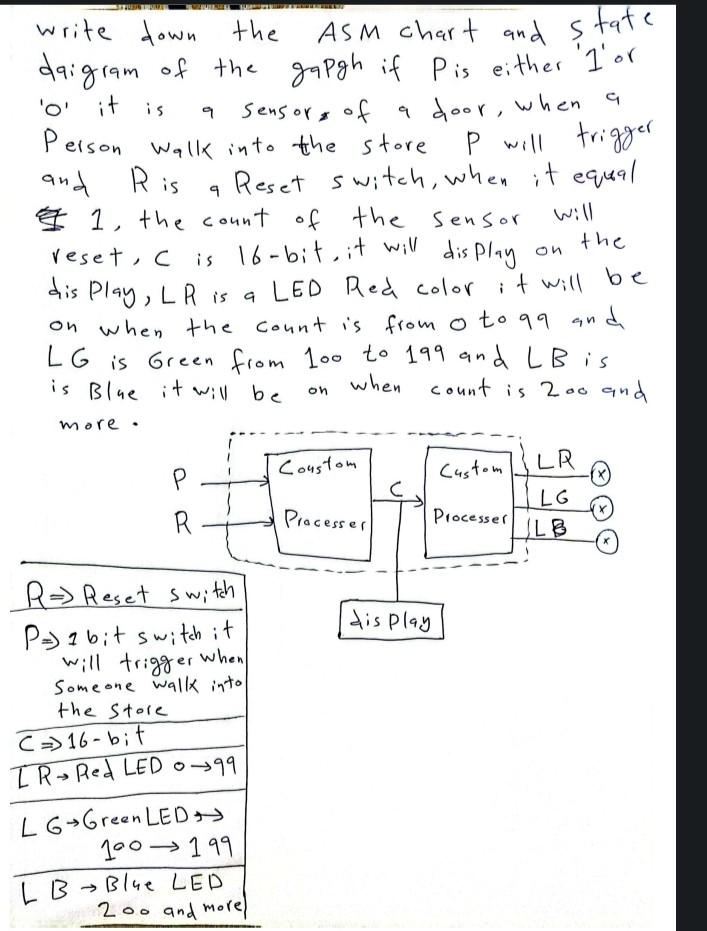 write down the ASM chart and state
daigram of the gapgh if P is either '1' or
'0' it is a sensor, of a door, when a
Person walk into the store P will trigger
and R is a Reset switch, when it equal
1, the count of the sensor will
reset, C is 16-bit, it will display on the
display, LR is a LED Red color it will be
on when the count is from 0 to 99 and
LG is Green from 100 to 199 and LB is
is Blue it will be on when count is 200 and
more.
P
R
Coustom
Processer
C
Custom
Processer
LR
LG
LB
display
R => Reset switch
P => 1 bit switch it
will trigger when
Someone walk into
the store
C => 16-bit
LR → Red LED 0 → 99
LG → Green LED →
100 → 199
LB → Blue LED
200 and more